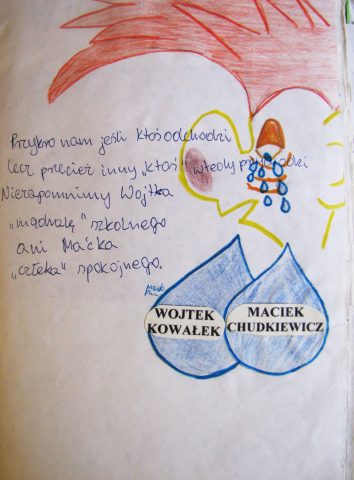 Przykro nam jeśli ktoś odchodzi
lecz przecież inny "ktoś" wtedy przychodzi
Niezapomnimy Wojtka
„mądralę" szkolnego
ani Maćka
„człeka" spokojnego.
WOJTEK
KOWAŁEK
MACIEK
CHUDKIEWICZ